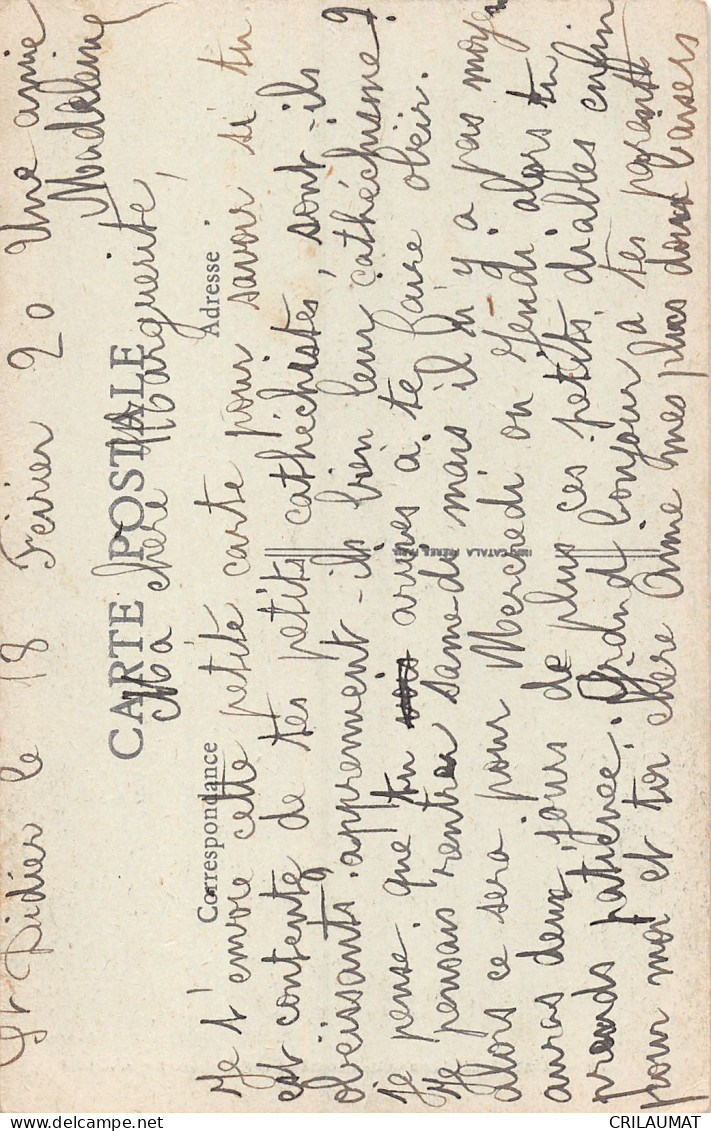 St Didier le 18 Février 20 Une amie
Madeleine
CARTE POSTALE
Ma chère Marguerite,
Correspondance
Adresse
Je t'envoie cette petite carte pour savoir si tu
est contente de tes petits cathéchistes, sont-ils
obeissants, apprennent-ils bien leur cathéchisme ?
je pense que tu arrives à te faire obéir.
Je pensais rentrer samedi mais il n'y a pas moyen
Alors ce sera pour Mercredi ou Jeudi alors tu
auras deux jours de plus ces petits diables enfin
prends patience. Grand bonjour a tes parents
pour moi et toi chère Amie mes plus doux baisers
IMP. CATALA FRÈRES PARIS
CRILAUMAT